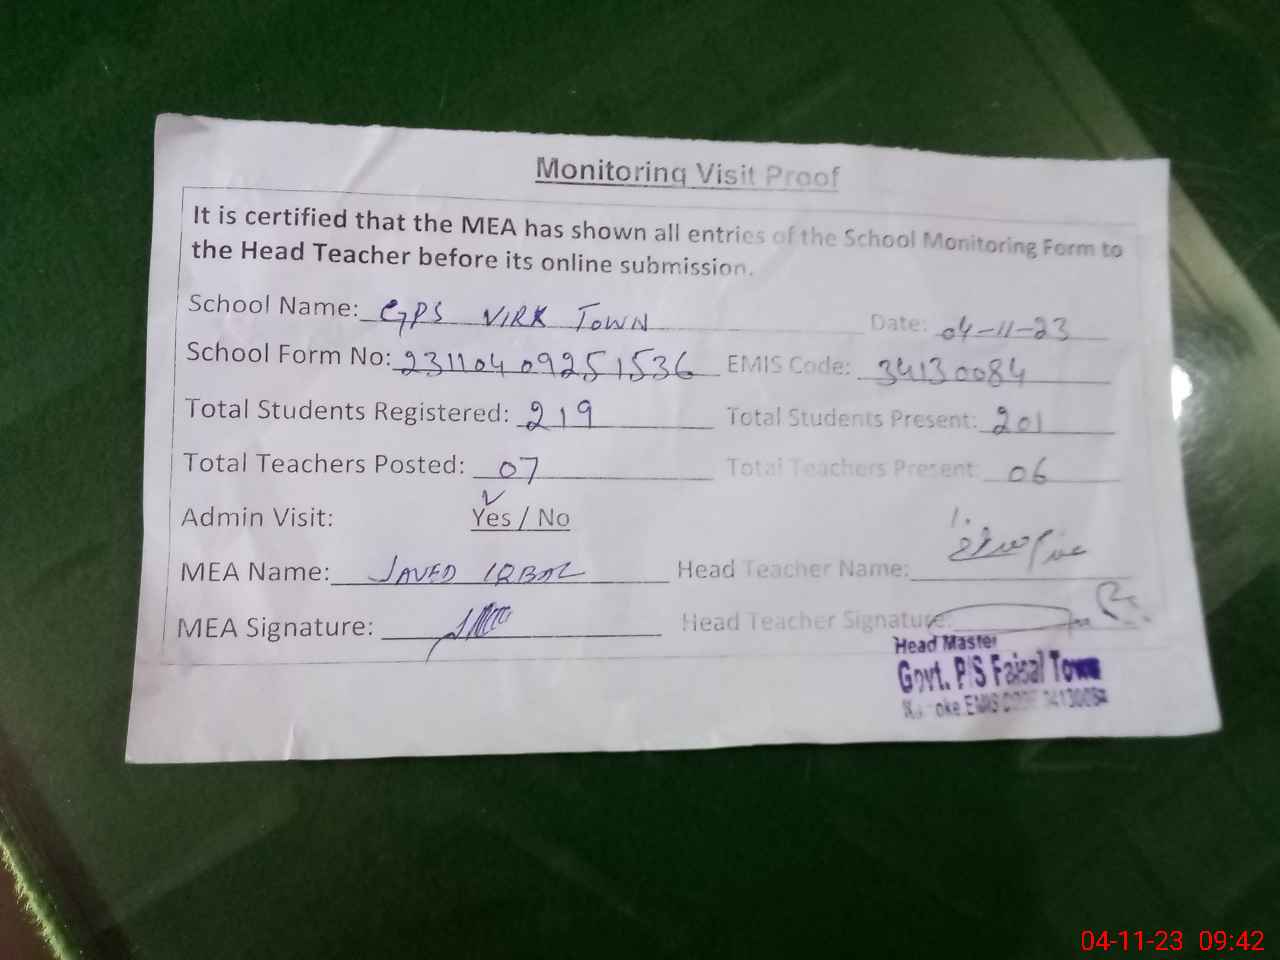 Monitoring Visit Proof
It is certified that the MEA has shown all entries of the School Monitoring Form to
the Head Teacher before its online submission.
School Name: GPS VIRK TOWN Date: 04-11-23
School Form No: 23110409251536 EMIS Code: 34130084
Total Students Registered: 219 Total Students Present: 201
Total Teachers Posted: 07 Total Teachers Present: 06
Admin Visit: Yes / No
MEA Name: JAVED IQBAL Head Teacher Name:
MEA Signature: Head Teacher Signature:
Head Master
Govt. P/S Faisal Town
EMIS CODE 34130084
04-11-23 09:42